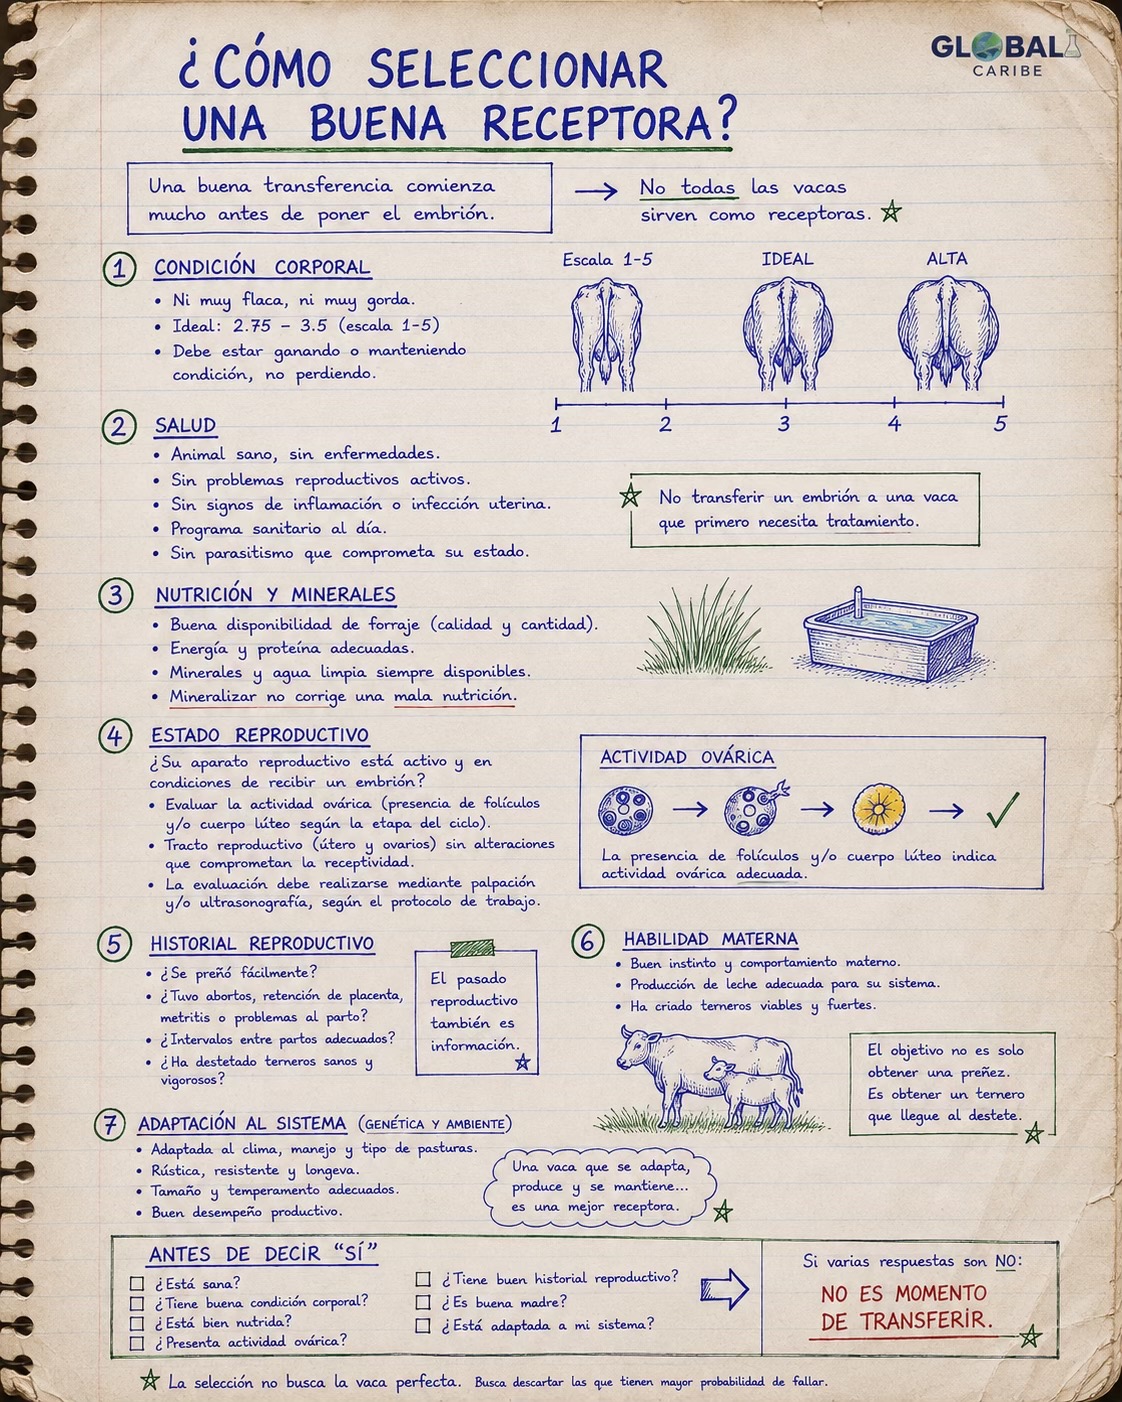 ¿CÓMO SELECCIONAR
UNA BUENA RECEPTORA?
GLOBAL
CARIBE
Una buena transferencia comienza
mucho antes de poner el embrión.
No todas las vacas
sirven como receptoras.
1 CONDICIÓN CORPORAL
• Ni muy flaca, ni muy gorda.
• Ideal: 2.75 - 3.5 (escala 1-5)
• Debe estar ganando o manteniendo
condición, no perdiendo.
Escala 1-5 IDEAL ALTA
1 2 3 4 5
2 SALUD
• Animal sano, sin enfermedades.
• Sin problemas reproductivos activos.
• Sin signos de inflamación o infección uterina.
• Programa sanitario al día.
• Sin parasitismo que comprometa su estado.
No transferir un embrión a una vaca
que primero necesita tratamiento.
3 NUTRICIÓN Y MINERALES
• Buena disponibilidad de forraje (calidad y cantidad).
• Energía y proteína adecuadas.
• Minerales y agua limpia siempre disponibles.
• Mineralizar no corrige una mala nutrición.
4 ESTADO REPRODUCTIVO
¿Su aparato reproductivo está activo y en
condiciones de recibir un embrión?
• Evaluar la actividad ovárica (presencia de folículos
y/o cuerpo lúteo según la etapa del ciclo).
• Tracto reproductivo (útero y ovarios) sin alteraciones
que comprometan la receptividad.
• La evaluación debe realizarse mediante palpación
y/o ultrasonografía, según el protocolo de trabajo.
ACTIVIDAD OVÁRICA
La presencia de folículos y/o cuerpo lúteo indica
actividad ovárica adecuada.
5 HISTORIAL REPRODUCTIVO
• ¿Se preñó fácilmente?
• ¿Tuvo abortos, retención de placenta,
metritis o problemas al parto?
• ¿Intervalos entre partos adecuados?
• ¿Ha destetado terneros sanos y
vigorosos?
El pasado
reproductivo
también es
información.
6 HABILIDAD MATERNA
• Buen instinto y comportamiento materno.
• Producción de leche adecuada para su sistema.
• Ha criado terneros viables y fuertes.
El objetivo no es solo
obtener una preñez.
Es obtener un ternero
que llegue al destete.
7 ADAPTACIÓN AL SISTEMA (GENÉTICA Y AMBIENTE)
• Adaptada al clima, manejo y tipo de pasturas.
• Rústica, resistente y longeva.
• Tamaño y temperamento adecuados.
• Buen desempeño productivo.
Una vaca que se adapta,
produce y se mantiene...
es una mejor receptora.
ANTES DE DECIR “SÍ”
¿Está sana?
¿Tiene buena condición corporal?
¿Está bien nutrida?
¿Presenta actividad ovárica?
¿Tiene buen historial reproductivo?
¿Es buena madre?
¿Está adaptada a mi sistema?
Si varias respuestas son NO:
NO ES MOMENTO
DE TRANSFERIR.
La selección no busca la vaca perfecta. Busca descartar las que tienen mayor probabilidad de fallar.